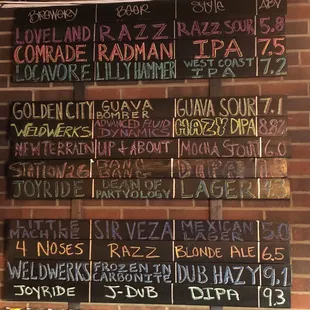 BREWERY BEER STYLE ABV
LOVELAND RAZZ RAZZ SOUR 5.8
COMRADE RADMAN IPA 7.5
LOCAVORE LILLYHAMMER WEST COAST IPA 7.2
GOLDEN CITY GUAVA BOMBER GUAVA SOUR 7.1
WELDWERKS ADVANCED FLUID DYNAMICS HAZY DIPA 8.8%
NEW TERRAIN UP & ABOUT MOCHA STOUT 6.0
STATION 26 BANG BANG DIPA
JOYRIDE DEAN OF PARTYOLOGY LAGER
MACHINE SIR VEZA MEXICAN LAGER 5.0
4 NOSES RAZZ BLONDE ALE 6.5
WELDWERKS FROZEN IN CARBONITE DUB HAZY 9.1
JOYRIDE J-DUB DIPA 9.3